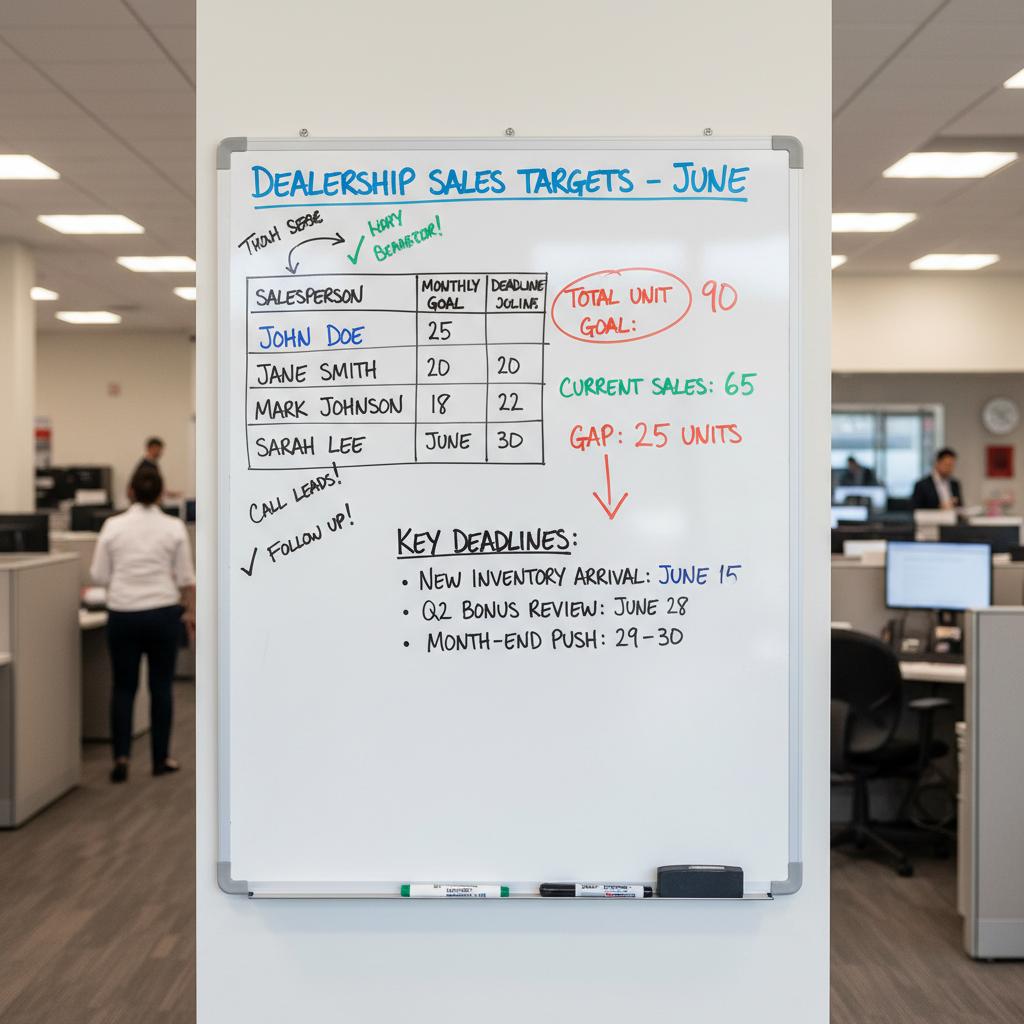 DEALERSHIP SALES TARGETS – JUNE
SALESPERSON MONTHLY GOAL DEADLINE
JOHN DOE 25
JANE SMITH 20 20
MARK JOHNSON 18 22
SARAH LEE JUNE 30
TOTAL UNIT GOAL: 90
CURRENT SALES: 65
GAP: 25 UNITS
CALL LEADS!
✓ FOLLOW UP!
KEY DEADLINES:
• NEW INVENTORY ARRIVAL: JUNE 15
• Q2 BONUS REVIEW: JUNE 28
• MONTH-END PUSH: 29–30